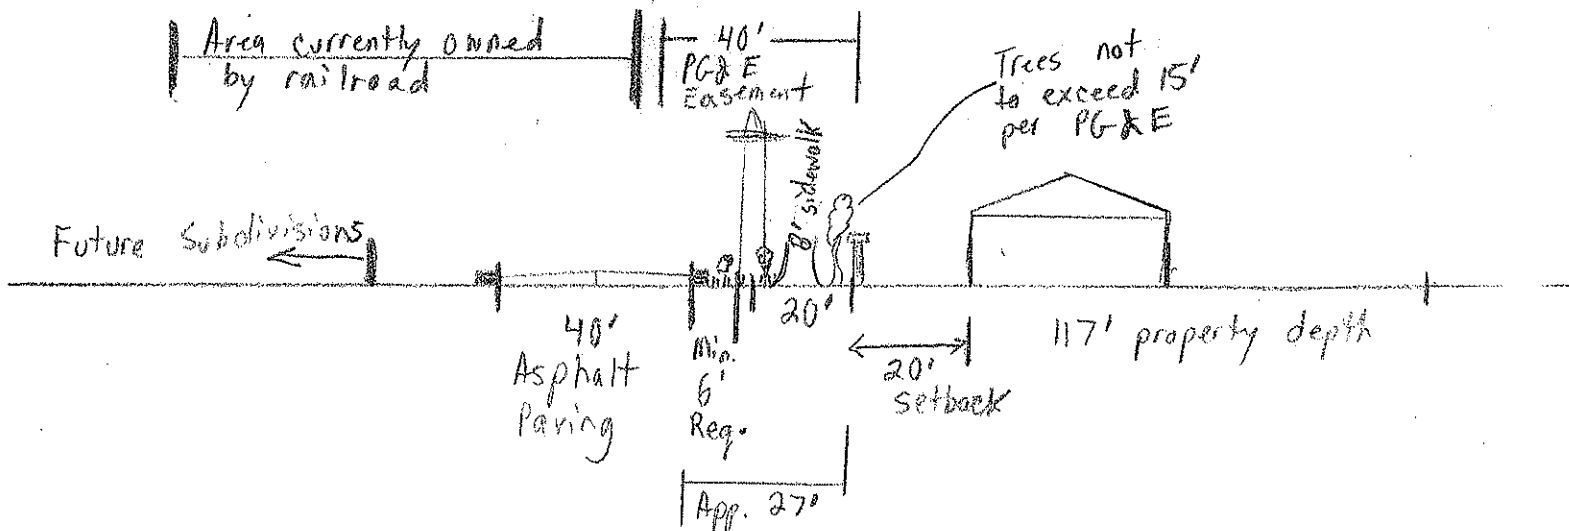 Area currently owned
by railroad
40'
PG&E
Easement
Trees not
to exceed 15'
per PG&E
8' sidewalk
Future Subdivisions
40'
Asphalt
Paving
Min.
6'
Req.
20'
20'
setback
117' property depth
App. 27'